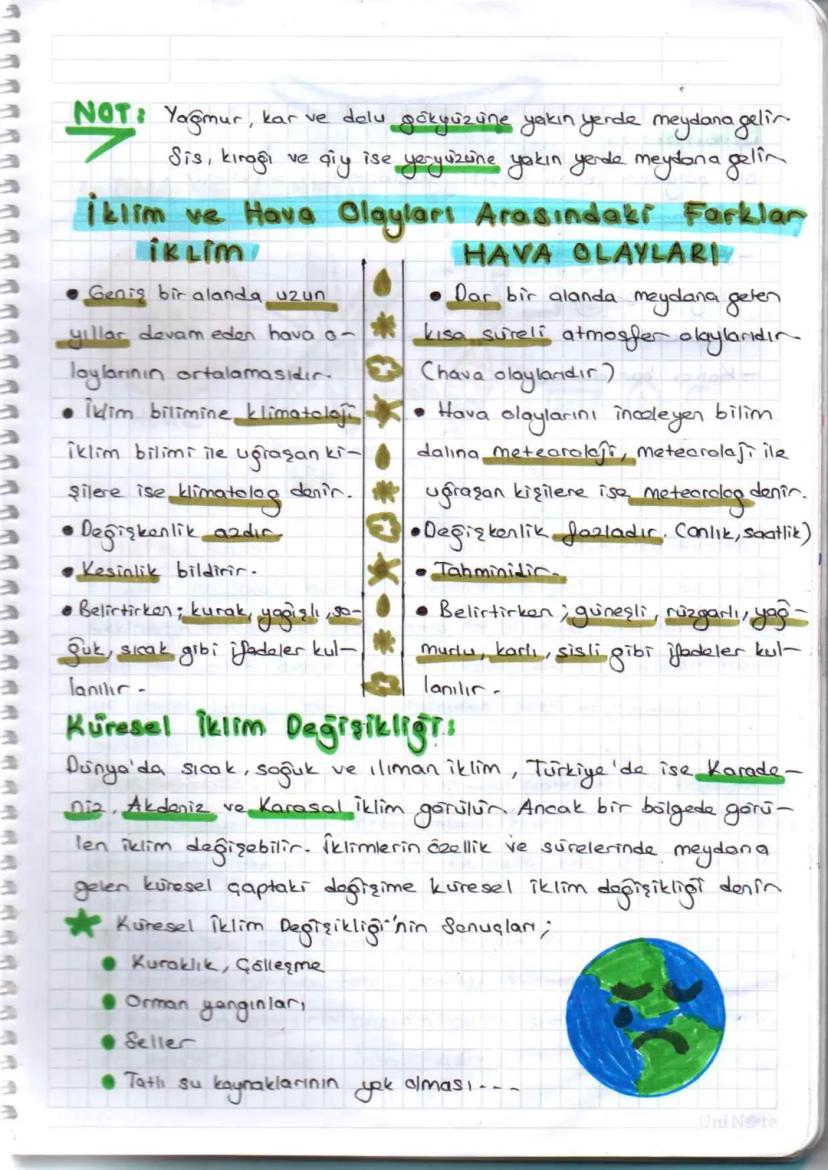 NOT: Yağmur, kar ve dolu gökyüzüne yakın yerde meydana gelir
Sis, kırağı ve çiy ise yeryüzüne yakın yerde meydana gelir
İklim ve Hava Olayları Arasındaki Farklar
İKLİM
• Geniş bir alanda uzun
yıllar devam eden hava o-
laylarının ortalamasıdır.
• İklim bilimine klimatoloji
iklim bilimi ile uğraşan ki-
şilere ise klimatolog denir.
• Değişkenlik azdır.
• Kesinlik bildirir.
• Belirtirken; kurak, yağışlı, so-
ğuk, sıcak gibi ifadeler kul-
lanılır.
HAVA OLAYLARI
• Dar bir alanda meydana gelen
kısa süreli atmosfer olaylarıdır.
(hava olaylarıdır)
• Hava olaylarını inceleyen bilim
dalına meteoroloji, meteoroloji ile
uğraşan kişilere ise meteorolog denir.
• Değişkenlik fazladır. (anlık, saatlik)
• Tahminidir.
• Belirtirken; güneşli, rüzgarlı, yağ-
murlu, karlı, sisli gibi ifadeler kul-
lanılır.
Küresel İklim Değişikliği:
Dünya'da sıcak, soğuk ve ılıman iklim, Türkiye'de ise Karade-
niz, Akdeniz ve Karasal iklim görülür. Ancak bir bölgede görü-
len iklim değişebilir. İklimlerin özellik ve sürelerinde meydana
gelen küresel çaptaki değişime küresel iklim değişikliği denir
★ Küresel İklim Değişikliği'nin Sonuçları;
• Kuraklık, Çölleşme
• Orman yangınları
• Seller
• Tatlı su kaynaklarının yok olması ---
UniNote